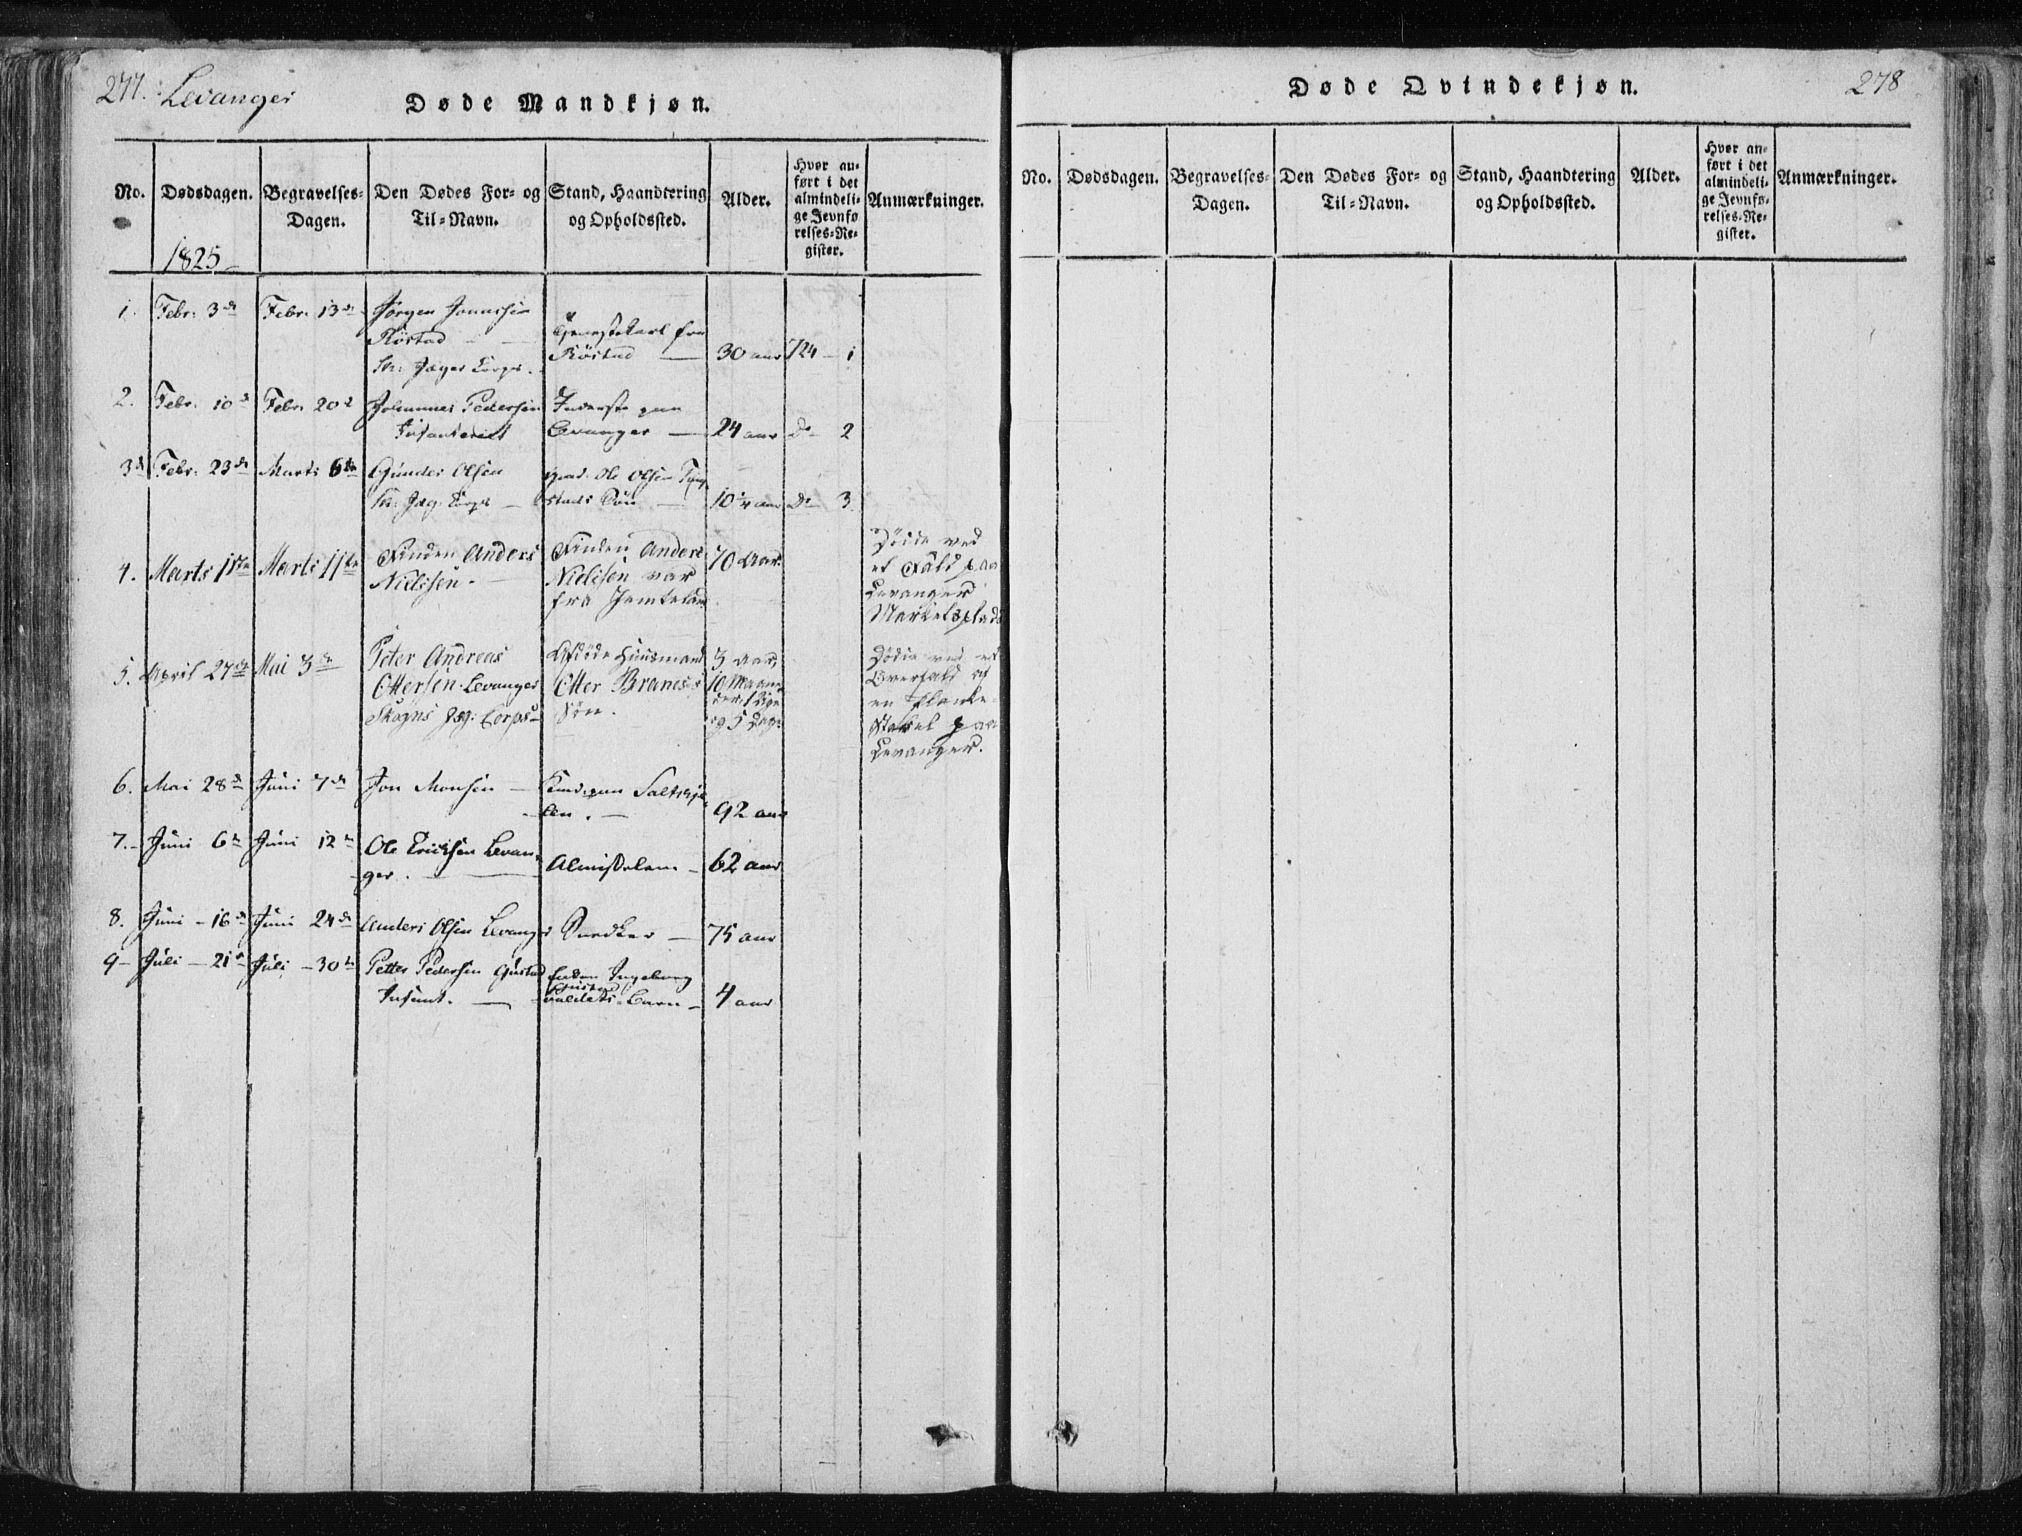 277. Levanger
Døde Mandkjøn.
No.
Dødsdagen.
Begravelses-
Dagen.
Den Dødes For- og
Til-Navn.
Stand, Haandtering
og Opholdssted.
Alder.
Hvor an-
ført i det
almindeli-
ge Jevnfø
relses-Re-
gister.
Anmærkninger.
1825
1. Febr. 3de Febr. 13de Jørgen
Röstad
Röstad 30 aar 724 - 1
Jæger Corps.
2. Febr. 10de Febr. 20de Johannes Pedersen
Levanger 24 aar Do 2
3 Febr. 23de Marts 6te Gunder Olsen Ole Olsen
Jæg. Corps Sön 10 1/4 aar Do 3
4. Marts 1ste Marts 11te Finden Anders
Nielsen.
Finden Anders
Nielsen var
fra Jemteland
70 Aar.
Döde ved
et Fald paa
Levanger
Markedsplads
5. April 27de Mai 3die Peter Andreas
Ottersen Levanger
Skogns Jæg: Corps
Afdöde Huusmand
Otter Branes's
Sön.
3 Aar,
10 Maane
der, 1 Uge
og 5 Dage
Döde ved et
Overfald af
en Planke-
Stabel paa
Levanger.
6. Mai 28de Juni 7de Jon Monsen
92 aar
7. Juni 6te Juni 12te Ole Ericksen Levan-
ger.
Almisselem 62 aar
8. Juni 16de Juni 24de Anders Olsen Levanger Snedker 75 aar
9 Juli 21de Juli 30te Petter Pedersen Gustad
Enken Ingeborg
Gustad
Barn 4 aar
Døde Qvindekjøn.
278
No.
Dødsdagen.
Begravelses-
Dagen.
Den Dødes For- og
Til-Navn.
Stand, Haandtering
og Opholdssted.
Alder.
Hvor an-
ført i det
almindeli-
ge Jevnfø-
relses-Re-
gister.
Anmærkninger.